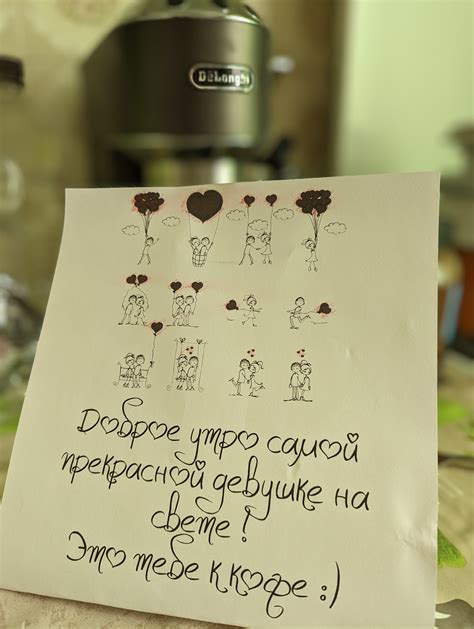 DeLonghi
Доброе утро самой
прекрасной девушке на
свете!
Это тебе к кофе :)